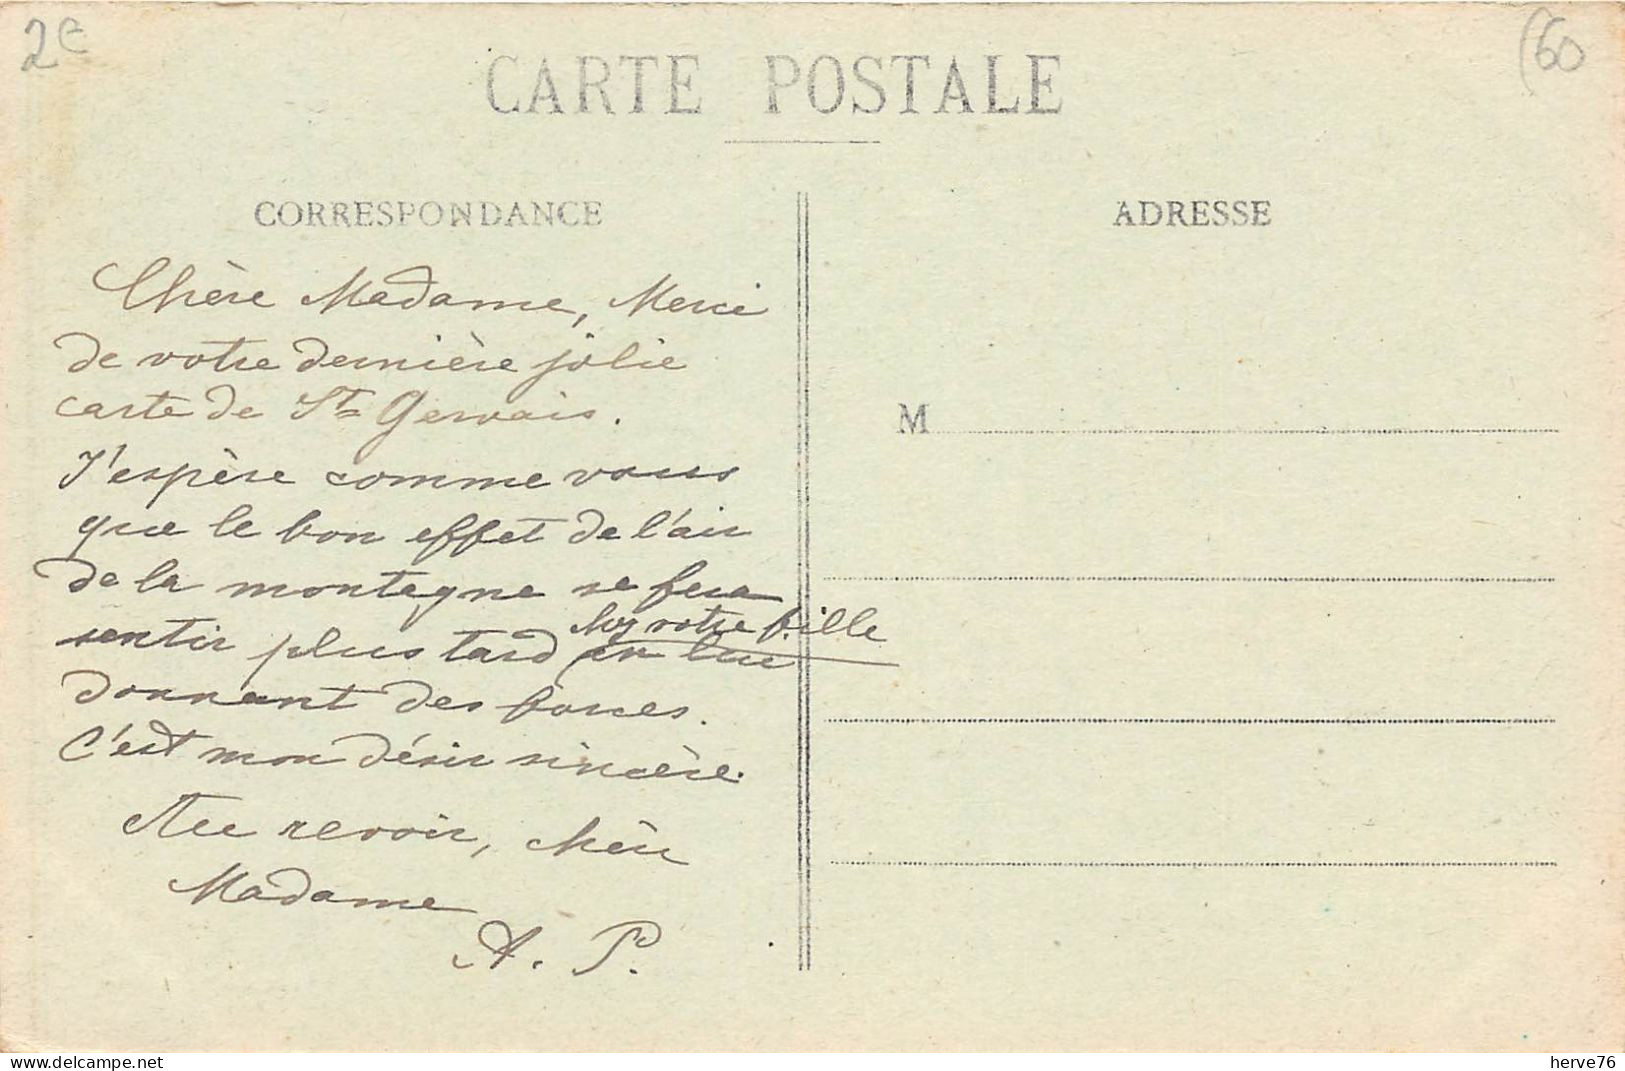 2e
(60
CARTE POSTALE
CORRESPONDANCE
ADRESSE
Chère Madame, Merci
de votre dernière jolie
carte de St Gervais.
J'espère comme vous
que le bon effet de l'air
de la montagne se fera
chez votre fille
sentir plus tard en lui
donnant des forces.
C'est mon désir sincère.
Au revoir, chère
Madame
A. P.
M
www.delcampe.net
herve76